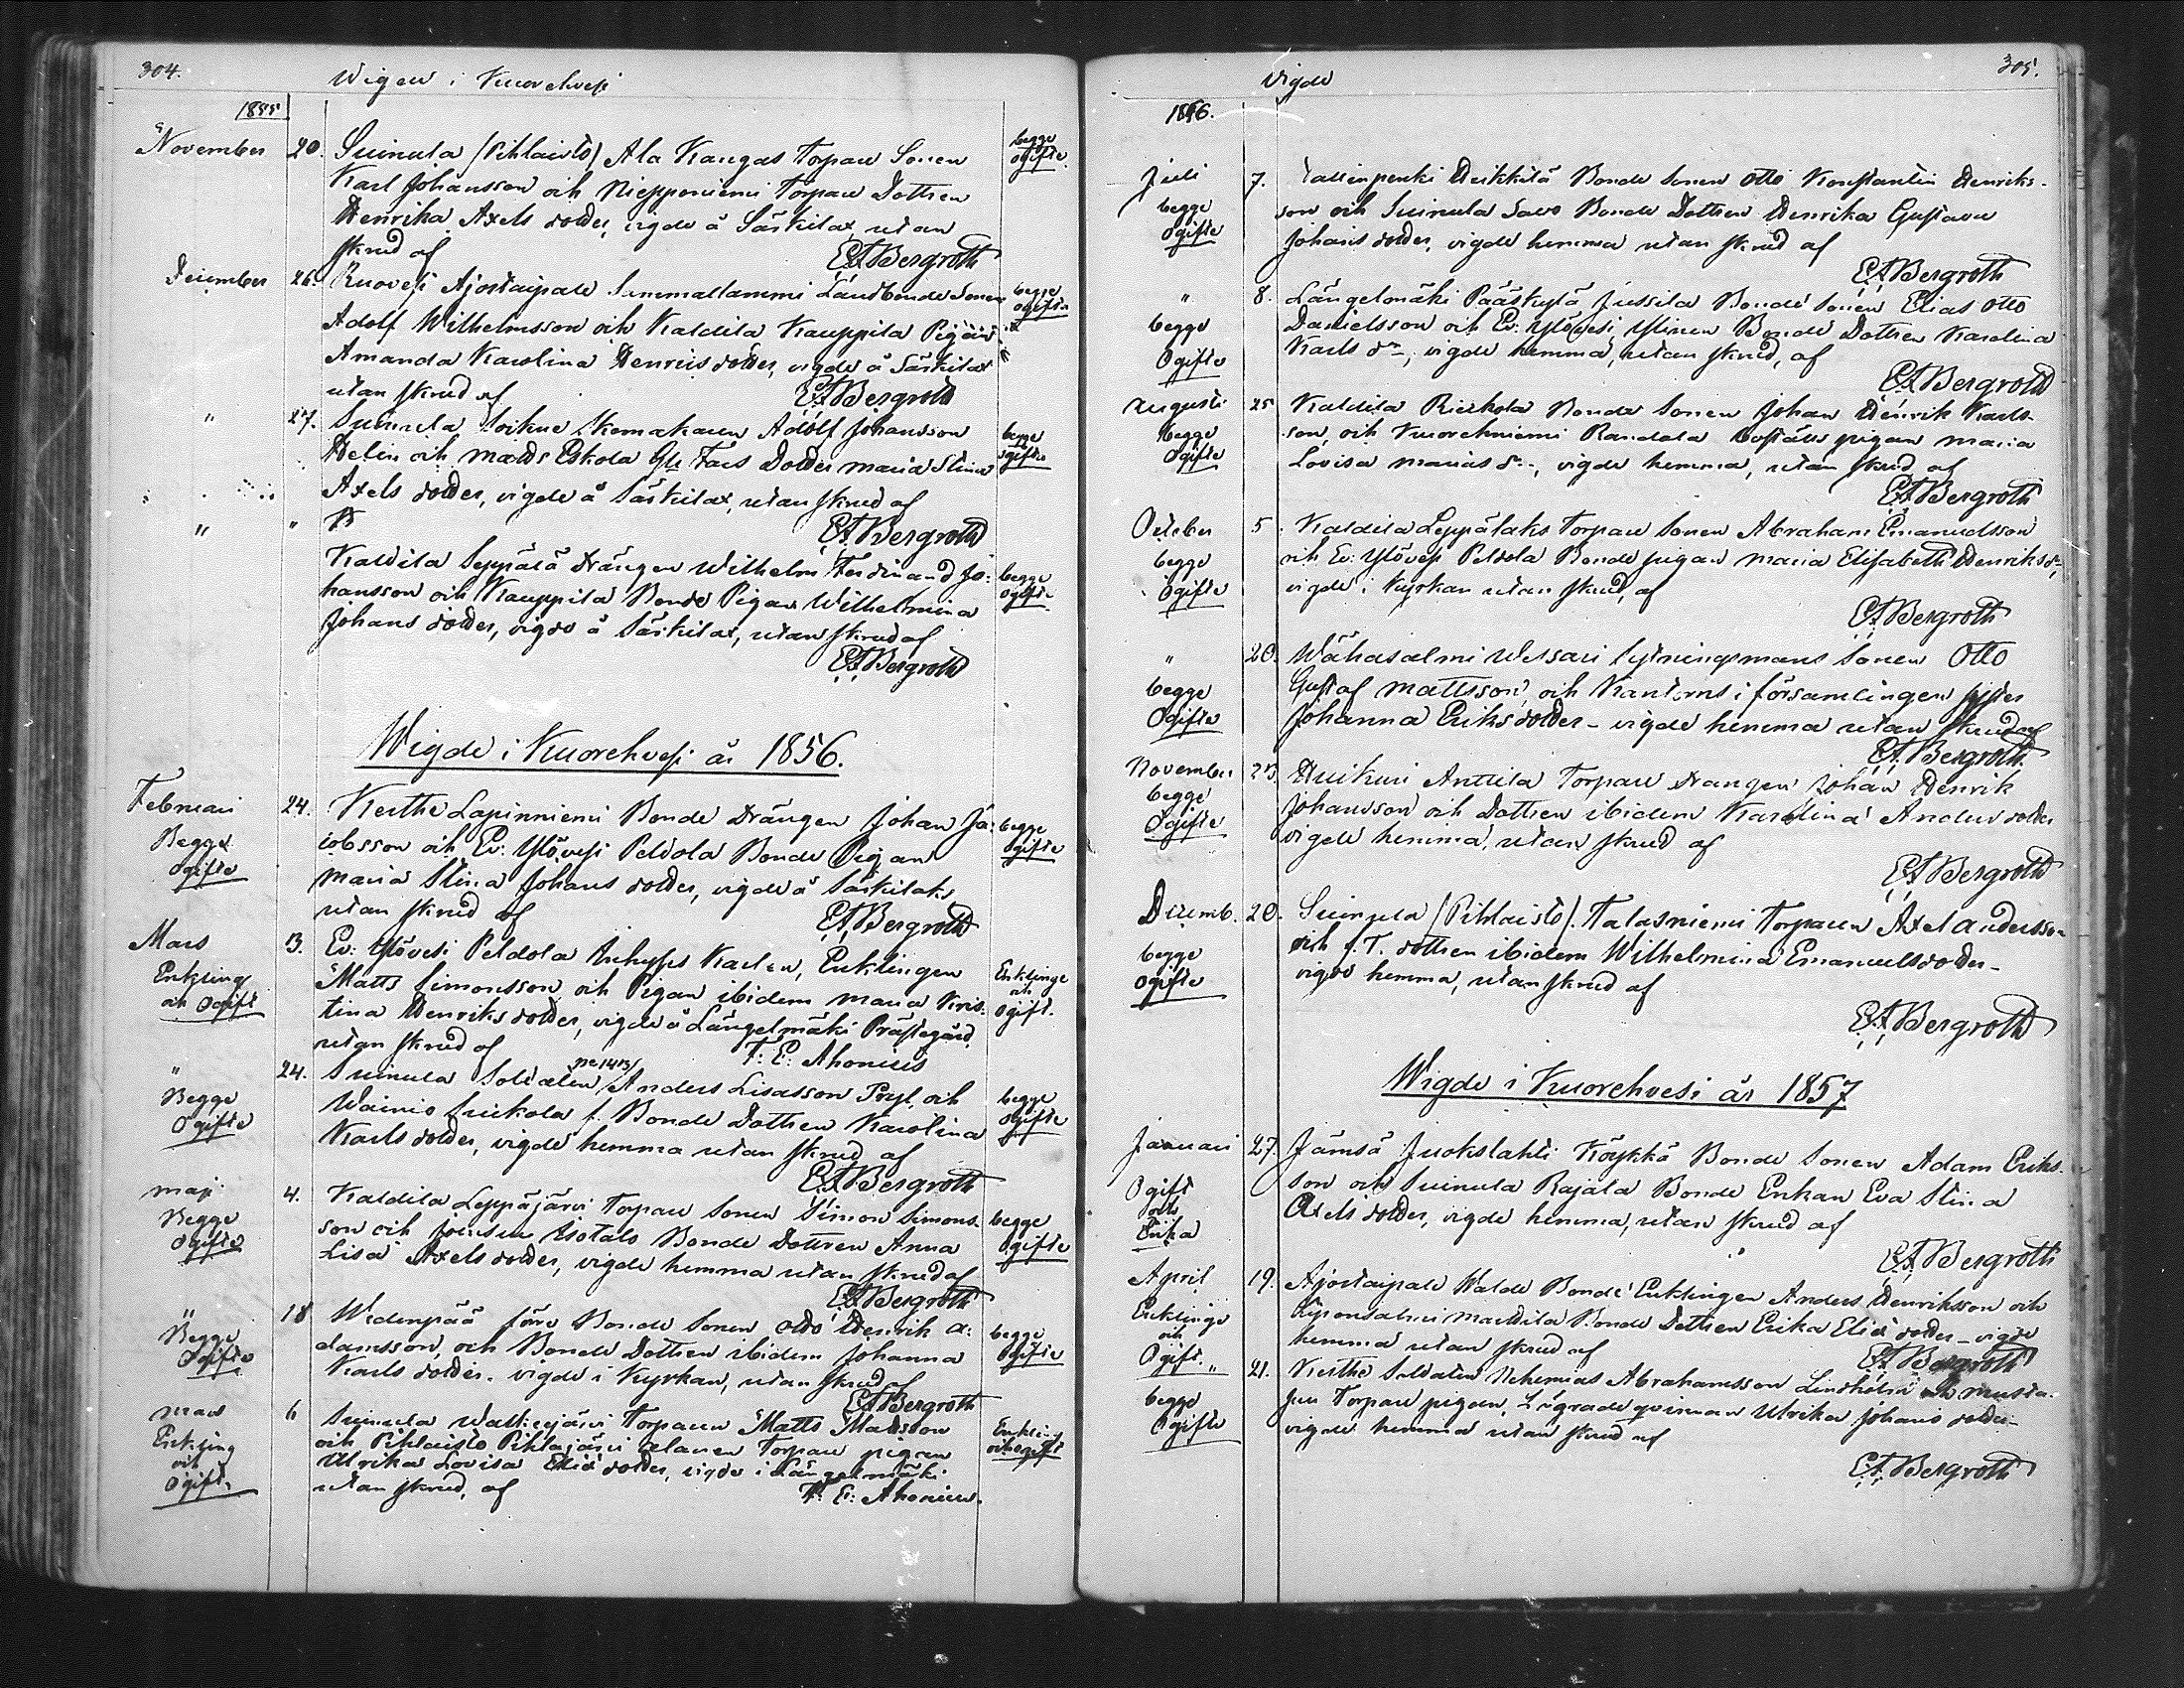 304.
Wigde i Kuorehvesi
1855
November 20. Suinula (Pihlaisto) Ala Kangas Torpare Sonen begge ogifte
Karl Johansson och Niepponiemi Torpare Dottren
Henrika Axels dotter, vigde å Särkilax utan
skrud af EA Bergroth
December 26. Ruovesi Ajostaipale Landbonde Sonen begge ogifte
Adolf Wilhelmsson och Kaldila Kauppila Pigan
Amanda Karolina Henrics dotter, vigde å Särkilax
utan skrud af EA Bergroth
" 27. Suinula Skomakaren Adolf Johansson begge ogifte
Helin och Eskola Dotter Maria Stina
Axels dotter, vigde å Särkilax, utan skrud af
" " EA Bergroth
Kaldila Seppälä Drängen Wilhelm Ferdinand Jo- begge ogifte
hansson och Kauppila Bonde Pigan Wilhelmina
Johans dotter, vigde å Särkilax, utan skrud af
EA Bergroth
Wigde i Kuorehvesi år 1856.
Februari 24. Keuthe Lapinniemi Bonde Drängen Johan Ja- begge ogifte
Begge cobsson och Ev: Ylövesi Peldola Bonde Pigan
Ogifte Maria Stina Johans dotter, vigde å Särkilaks
utan skrud af EA Bergroth
Mars 13. Ev: Ylövesi Peldola Inhyses Karlen, Enklingen Enklinge och ogift.
Enkling Matts Simonsson och Pigan ibidem Maria Kris-
och Ogift tina Henriks dotter, vigde å Längelmäki Prästegård
utan skrud af F: E: Ahonius
" 24. Suinula Soldaten Anders Lisasson Pryl, och begge ogifte
Begge Wainio f. Bonde Dottren Karolina
Ogifte Karls dotter, vigde hemma utan skrud af
EA Bergroth
Maji 4. Kaldila Leppäjärvi Torpare Sonen Simon Simons- begge ogifte
Begge son och Isotalo Bonde Dottren Anna
Ogifte Lisa Axels dotter, vigde hemma utan skrud af
EA Bergroth
" 18 Wedenpää Bonde Sonen Otto Henrik A- begge ogifte
Begge damsson, och Bonde Dottren ibidem Johanna
Ogifte Karls dotter. vigde i Kyrkan, utan skrud af
EA Bergroth
6 Suinula Torparen Matts Mattsson Enkling och ogift
Enkling och Pihlaisto Pihlajärvi Torpare pigan
och Ulrika Lovisa Eliæ dotter, vigde i Längelmäki
Ogift. utan skrud, af F: E: Ahonius.
305.
Vigde
1856.
Juli 7. Heikkilä Bonde Sonen Otto Konstantin Henriks-
begge son och Suinula Savo Bonde Dottren Henrika Gustava
Ogifte Johans dotter, vigde hemma utan skrud af
EA Bergroth
" 8. Längelmäki Pääskylä Jussila Bonde sonen Elias Otto
begge Danielsson och Ev: Ylövesi Ylinen Bonde Dottren Karolina
Ogifte Karls dr, vigde hemma, utan skrud, af
EA Bergroth
Augusti 25 Kaldila Rieskola Bonde Sonen Johan Henrik Karls-
begge son, och Kuorehniemi Randala Boställs pigan Maria
Ogifte Lovisa Marias dr, vigde hemma, utan skrud af
EA Bergroth
October 5. Kaldila Leppälaks Torpare Sonen Abraham Emanuelsson
begge och Ev: Ylövesi Peldola Bonde pigan Maria Elisabeth Henriks dr,
Ogifte vigde i Kyrkan utan skrud, af
EA Bergroth
" 20. Wähäsalmi Wessari Sytningsmans Sonen Otto
begge Gustaf Mattsson, och Kantorns i församlingen syster
Ogifte Johanna Eriks dotter - vigde hemma utan skrud af
EA Bergroth
November 23. Huikuri Anttila Torpare Drängen Johan Henrik
begge Johansson och Dottren ibidem Karolina Anders dotter
Ogifte vigde hemma, utan skrud af
EA Bergroth
Decemb. 20. Suinula (Pihlaisto). Talasniemi Torparen Axel Andersson
begge och f.T. dottren ibidem Wilhelmina Emanuels dotter -
ogifte vigde hemma, utan skrud af
EA Bergroth
Wigde i Kuorehvesi år 1857
Januari 27. Jämsä Juokslahti Köykkä Bonde Sonen Adam Eriks-
Ogift son och Suinula Rajala Bonde Enkan Eva Stina
och Axels dotter, vigde hemma, utan skrud af
Enka
EA Bergroth
April 19. Ajostaipale Walde Bonde Enklingen Anders Henriksson och
Enklinge Mattila Bonde Dottren Erika Eliæ dotter - vigde
och hemma utan skrud af EA Bergroth
Ogift. " 21. Keuthe Soldaten Nehemias Abrahamsson Lindholm och Musta-
begge Torpare pigan, Lägrade qvinnan Ulrika Johans dotter -
Ogifte vigde hemma utan skrud af
EA Bergroth